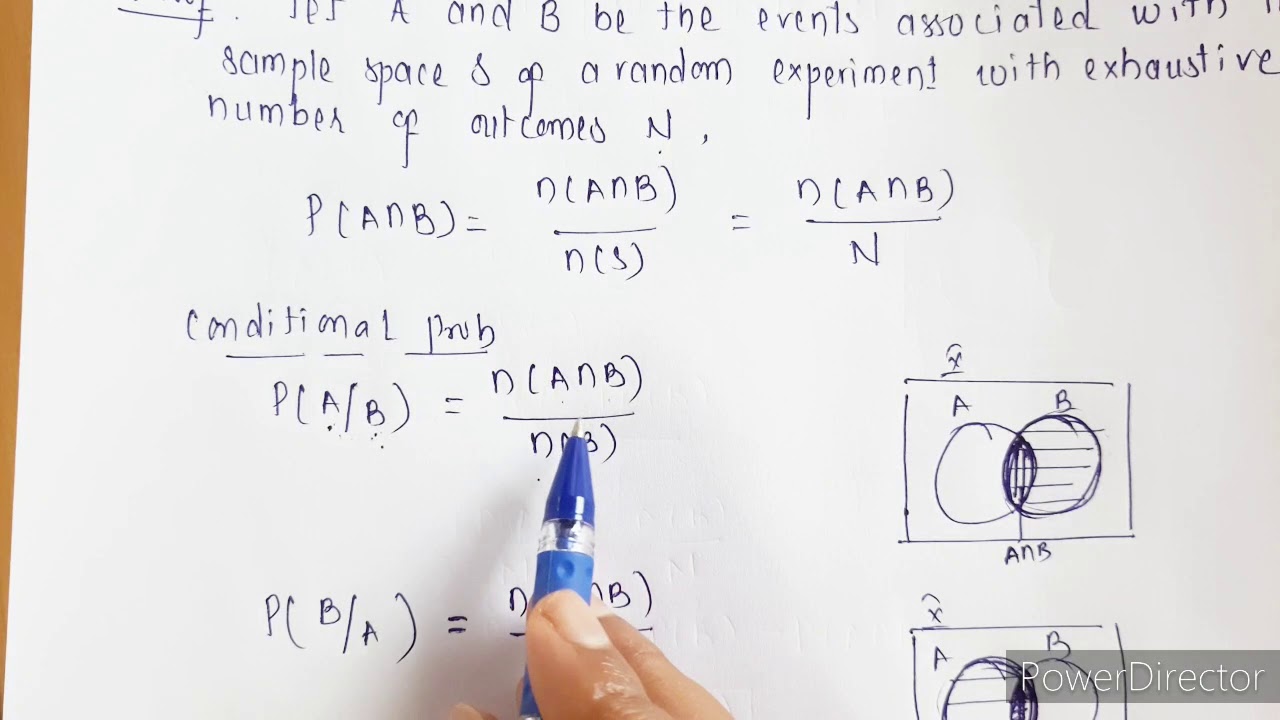 A and B be the events associated with
sample space S of a random experiment with exhaustive
number of outcomes N,
P(A∩B) = n(A∩B) / n(S) = n(A∩B) / N
Conditional prob
P(A/B) = n(A∩B) / n(B)
x
A B
A∩B
P(B/A) =
x
A B
PowerDirector